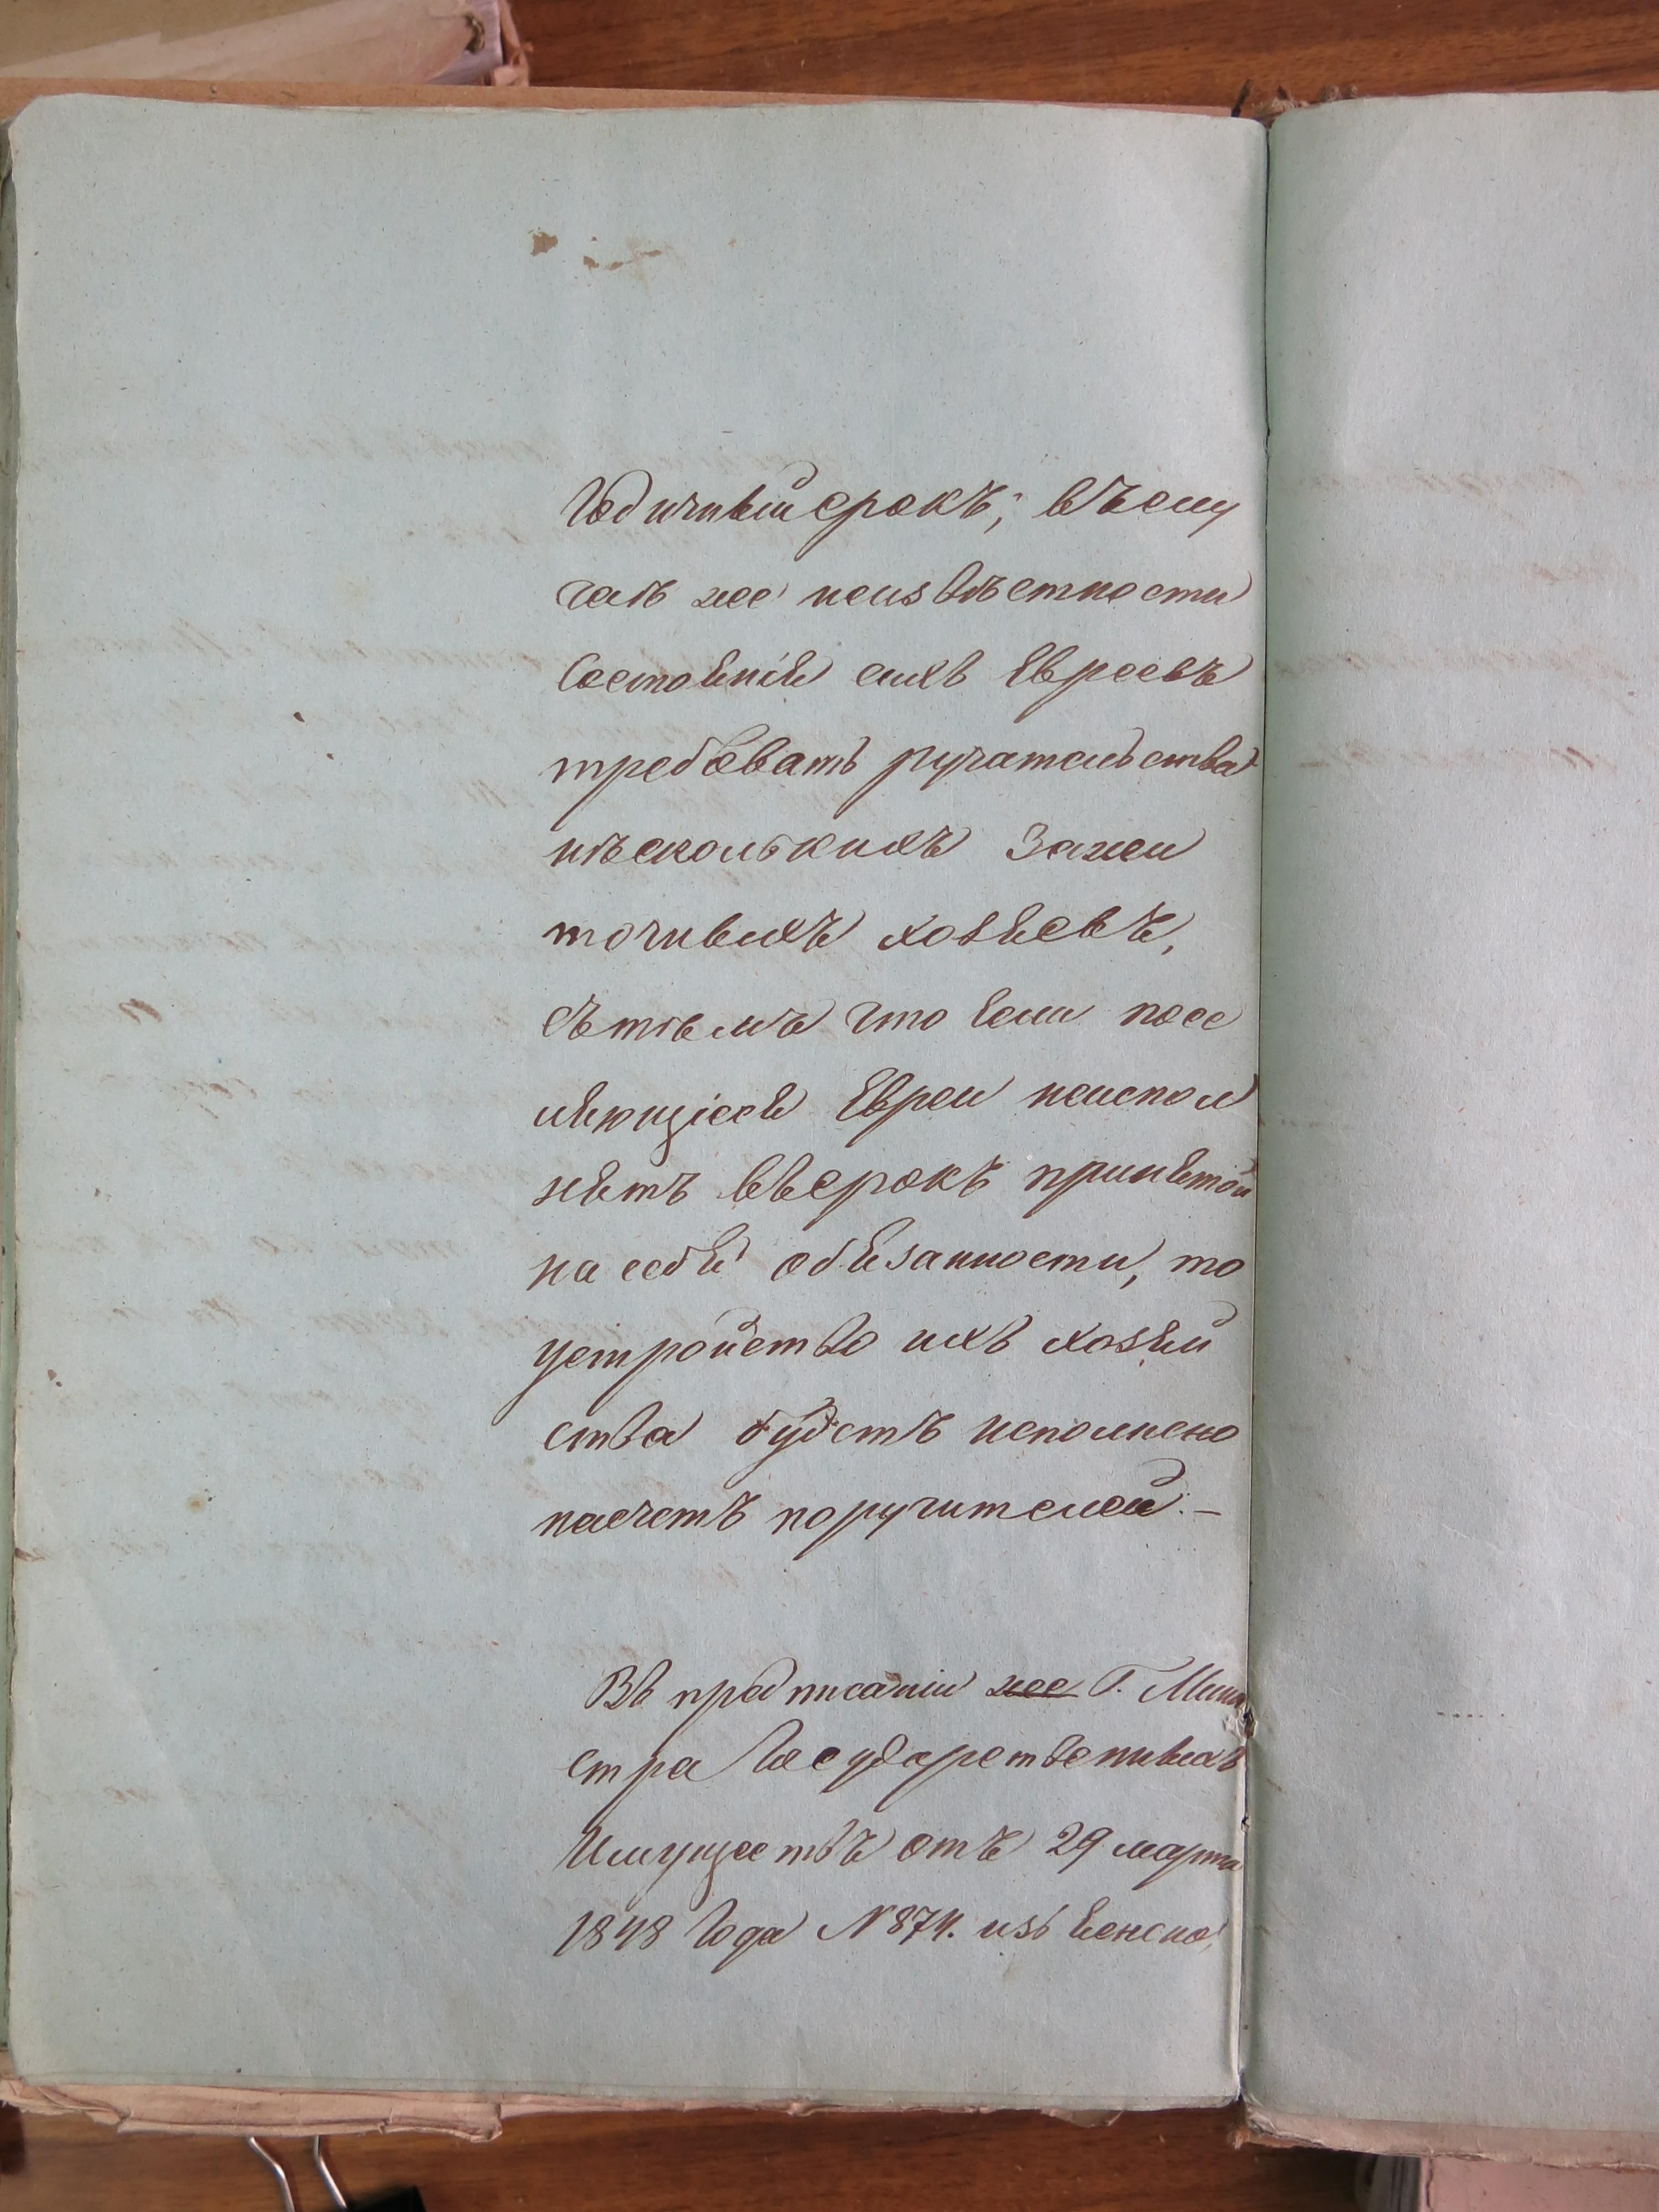 Годичный срокъ; въ слу
чаѣ же неизвѣстности
Состоянія сихъ Евреевъ
требовать ручательства
нѣсколькихъ Зажи
точныхъ хозяевъ,
съ тѣмъ что если посе
ляющіеся Евреи неиспол
нятъ въ срокъ принятой
на себя обязанности, то
устройство ихъ хозяй
ства будетъ исполнено
насчетъ поручителей. —
Въ предписаніи же Г. Мини
стра Государственныхъ
Имуществъ отъ 29 марта
1848 Года № 874. изъяснено,